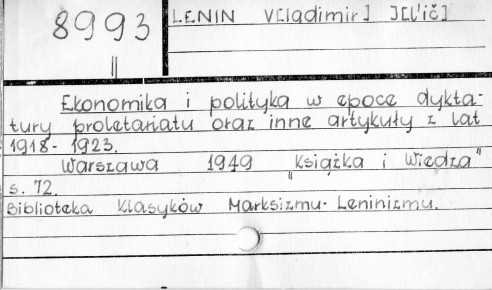 8993
LENIN V[ladimir] J[l'ič]
Ekonomika i polityka w epoce dykta-
tury proletariatu oraz inne artykuły z lat
1918- 1923.
Warszawa 1949 "Książka i Wiedza"
s. 72.
Biblioteka Klasyków Marksizmu- Leninizmu.